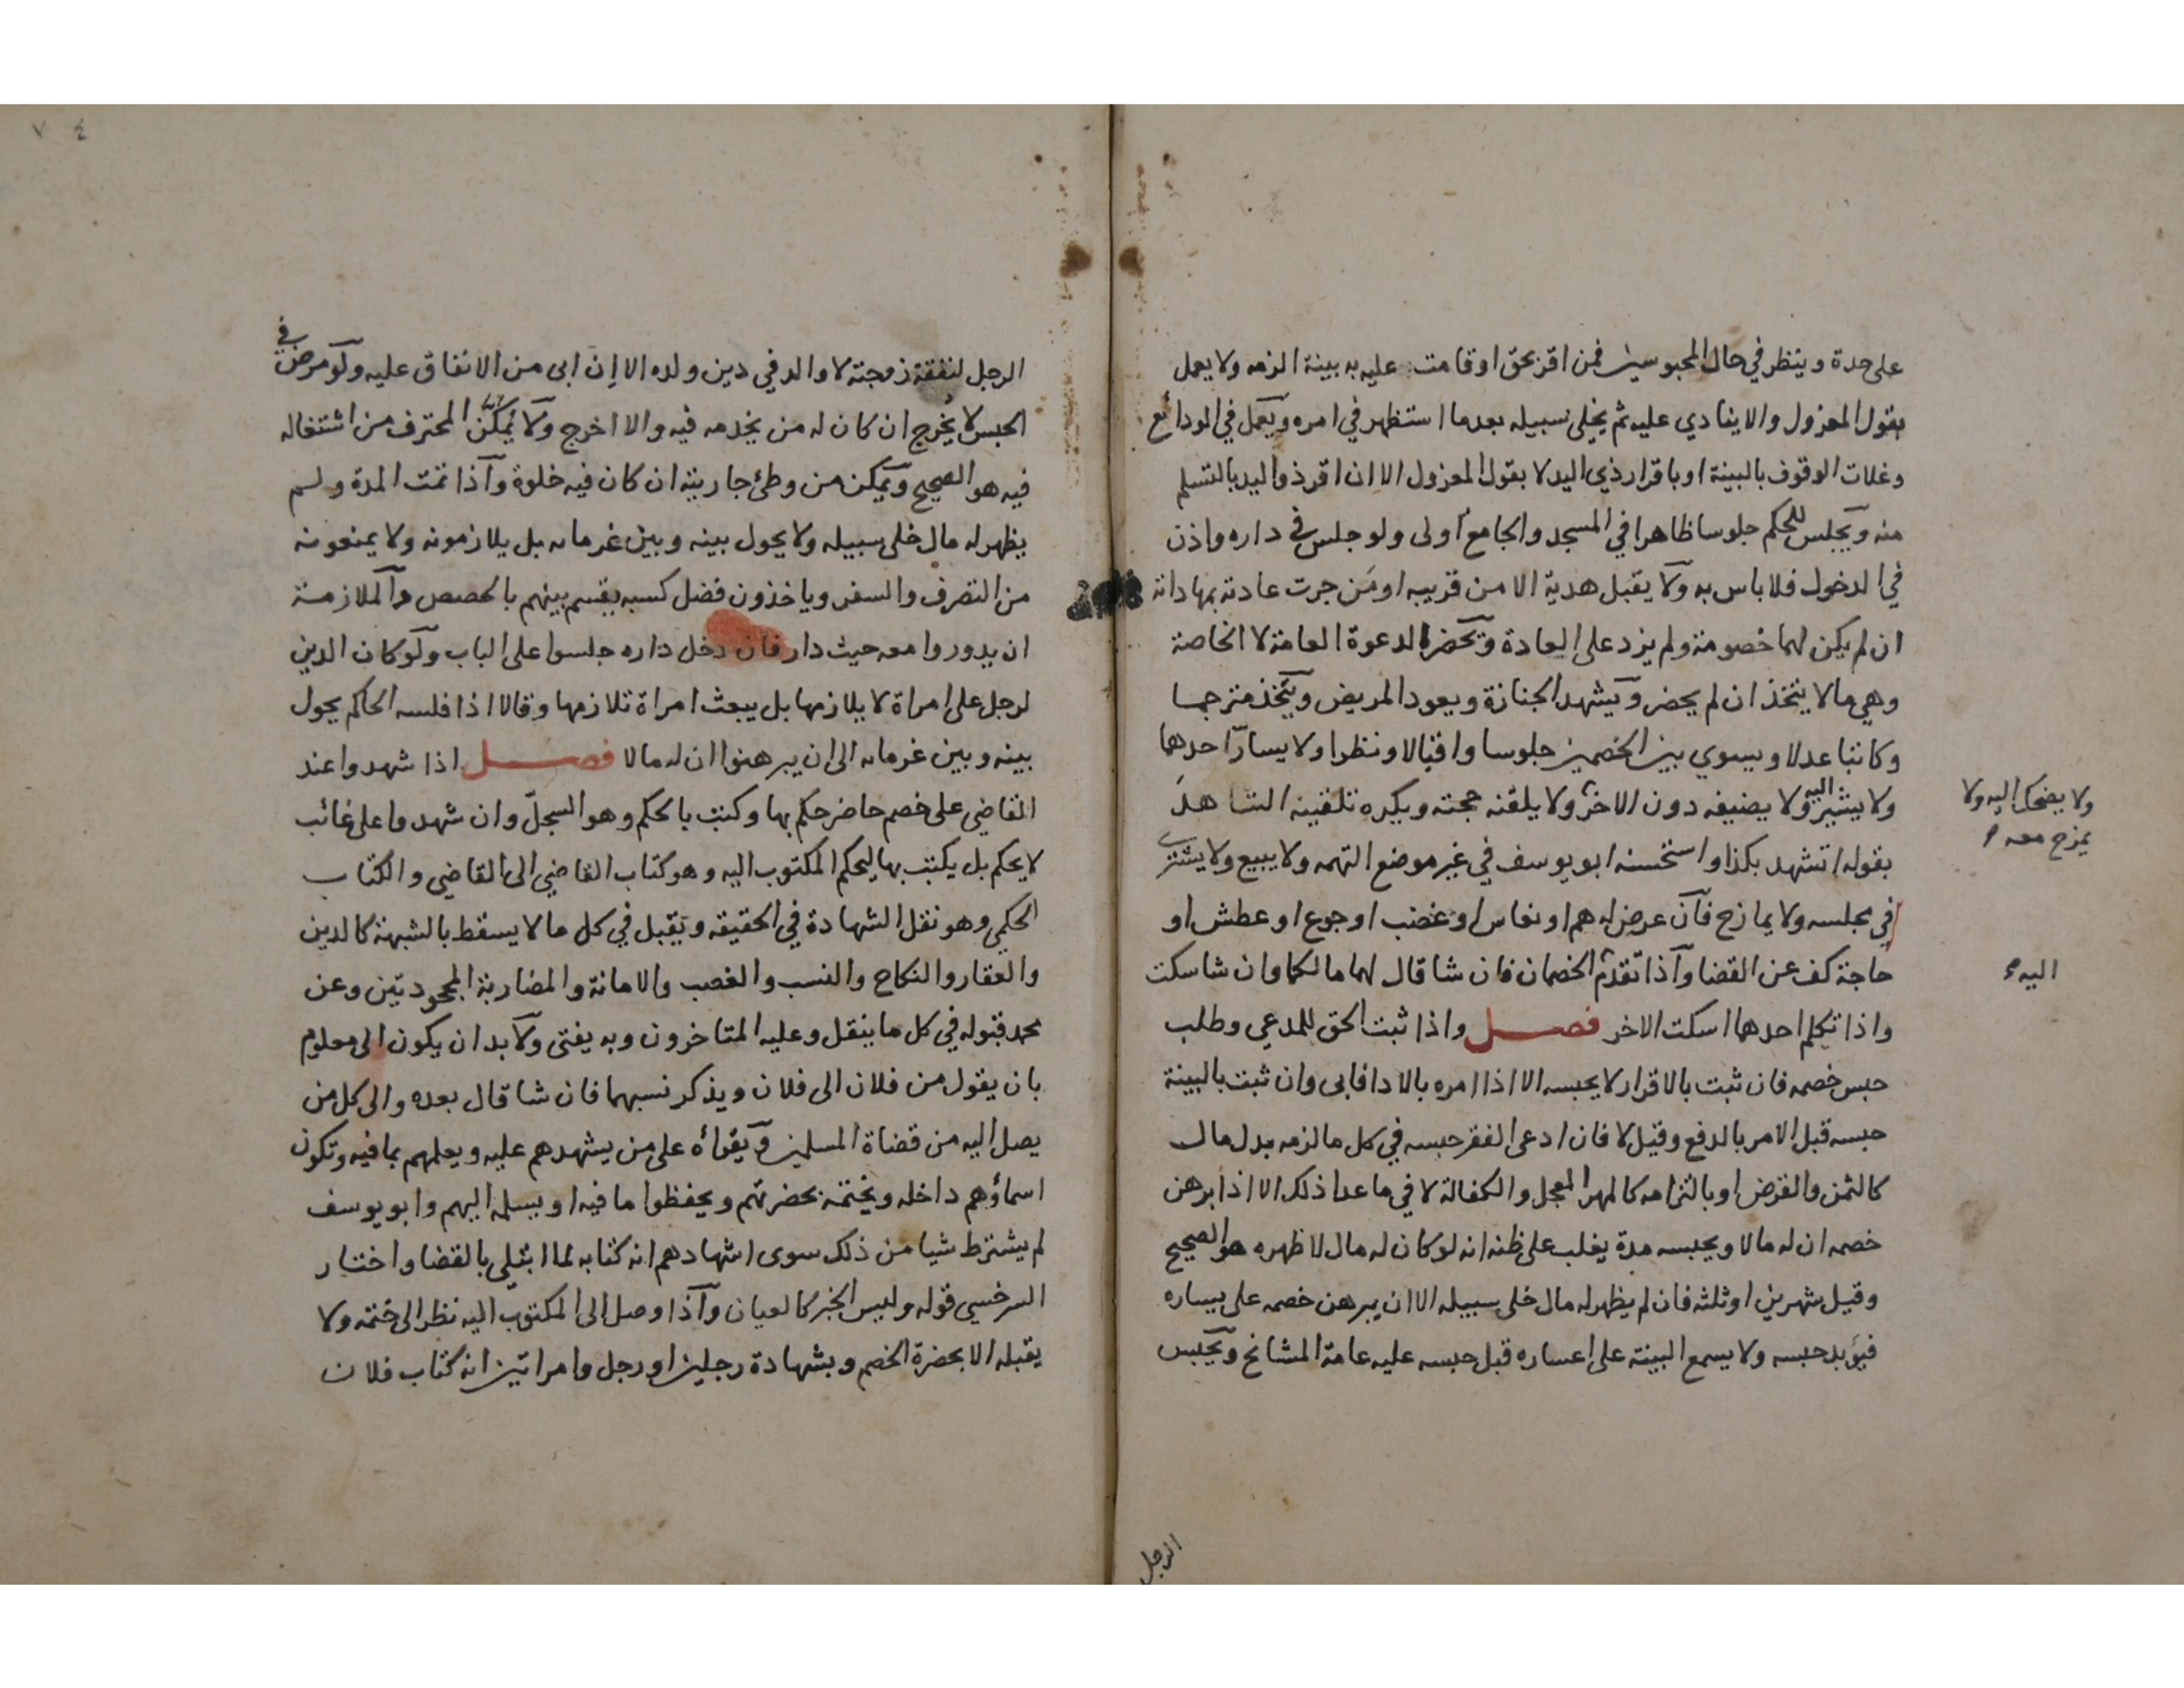 على حدة وينظر في حال المحبوسين فمن اقر بحق او قامت عليه به بينة الزمه ولا يعمل
بقول المعزول والا ينادي عليه ثم يخلى سبيله بعدما استظهر في امره ويعمل في الودائع
وغلات الوقوف بالبينة او باقرار ذي اليد لا بقول المعزول الا ان اقر ذو اليد بالتسلم
منه ويجلس للحكم جلوسا ظاهرا في المسجد والجامع اولى ولو جلس في داره واذن
في الدخول فلا باس به ولا يقبل هدية الا من قريبه او من جرت عادته بمهاداته
ان لم يكن لهما خصومة ولم يزد على العادة ويحضر الدعوة العامة لا الخاصة
وهي ما لا يتخذ ان لم يحضر ويشهد الجنازة ويعود المريض ويتخذ مترجما
وكاتبا عدلا ويسوي بين الخصمين جلوسا واقبالا ونظرا ولا يسارّ احدهما
ولا يشير اليه ولا يضيفه دون الاخر ولا يلقنه حجته ويكره تلقينه الشاهد
ولا يضحك اليه ولا
يمزح معه
بقوله اتشهد بكذا واستحسنه ابو يوسف في غير موضع التهمه ولا يبيع ولا يشتري
في مجلسه ولا يمازح فان عرض له هم او نعاس او غضب او جوع او عطش او
حاجة كف عن القضا واذا تقدم الخصمان فان شا قال لهما مالكما وان شا سكت
اليه
واذا تكلم احدهما اسكت الاخر فصل واذا ثبت الحق للمدعي وطلب
حبس خصمه فان ثبت بالاقرار لا يحبسه الا اذا امره بالادا فابى وان ثبت بالبينة
حبسه قبل الامر بالدفع وقيل لا فان ادعى الفقر حبسه في كل ما لزمه بدل مال
كالثمن والقرض او بالتزامه كالمهر المعجل والكفالة لا في ما عدا ذلك الا اذا برهن
خصمه ان له مالا ويحبسه مدة يغلب على ظنه انه لو كان له مال لاظهره هو الصحيح
وقيل شهرين او ثلثه فان لم يظهر له مال خلى سبيله الا ان يبرهن خصمه على يساره
فيؤبد حبسه ولا يسمع البينة على اعساره قبل حبسه عليه عامة المشائخ ويحبس
الرجل
٧٤
الرجل لنفقة زوجته لا والد في دين ولده الا إن ابى من الانفاق عليه ولو مرض في
الحبس لا يُخرج ان كان له من يخدمه فيه والا اخرج ولا يُمكَّن المحترف من اشتغاله
فيه هو الصحيح ويمكن من وطئ جاريته ان كان فيه خلوة واذا تمت المدة ولم
يظهر له مال خلى سبيله ولا يحول بينه وبين غرمائه بل يلازمونه ولا يمنعونه
من التصرف والسفر وياخذون فضل كسبه يقسم بينهم بالحصص والملازمة
ان يدوروا معه حيث دار فان دخل داره جلسوا على الباب ولو كان الدين
لرجل على امراة لا يلازمها بل يبعث امراة تلازمها وقالا اذا فلسه الحاكم يحول
بينه وبين غرمائه الى ان يبرهنوا ان له مالا فصل اذا شهدوا عند
القاضي على خصم حاضر حكم بها وكتب بالحكم وهو السجلّ وان شهدوا على غائب
لا يحكم بل يكتب بها ليحكم المكتوب اليه وهو كتاب القاضي الى القاضي والكتاب
الحكمي وهو نقل الشهادة في الحقيقه ويقبل في كل ما لا يسقط بالشبهة كالدين
والعقار والنكاح والنسب والغصب والامانة والمضاربة المجحودتين وعن
محمد قبوله في كل ما ينقل وعليه المتاخرون وبه يفتى ولا بد ان يكون الى معلوم
بان يقول من فلان الى فلان ويذكر نسبهما فان شا قال بعده والى كل من
يصل اليه من قضاة المسلمين ويقراه على من يشهدهم عليه ويعلمهم بما فيه وتكون
اسماؤهم داخله ويختمه بحضرتهم ويحفظوا ما فيه او يسلمه اليهم وابو يوسف
لم يشترط شيا من ذلك سوى اشهادهم انه كتابه لما ابتلي بالقضا واختار
السرخسي قوله وليس الخبر كالعيان واذا وصل الى المكتوب اليه نظر الى ختمه ولا
يقبله الا بحضرة الخصم وبشهادة رجلين او رجل وامراتين انه كتاب فلان